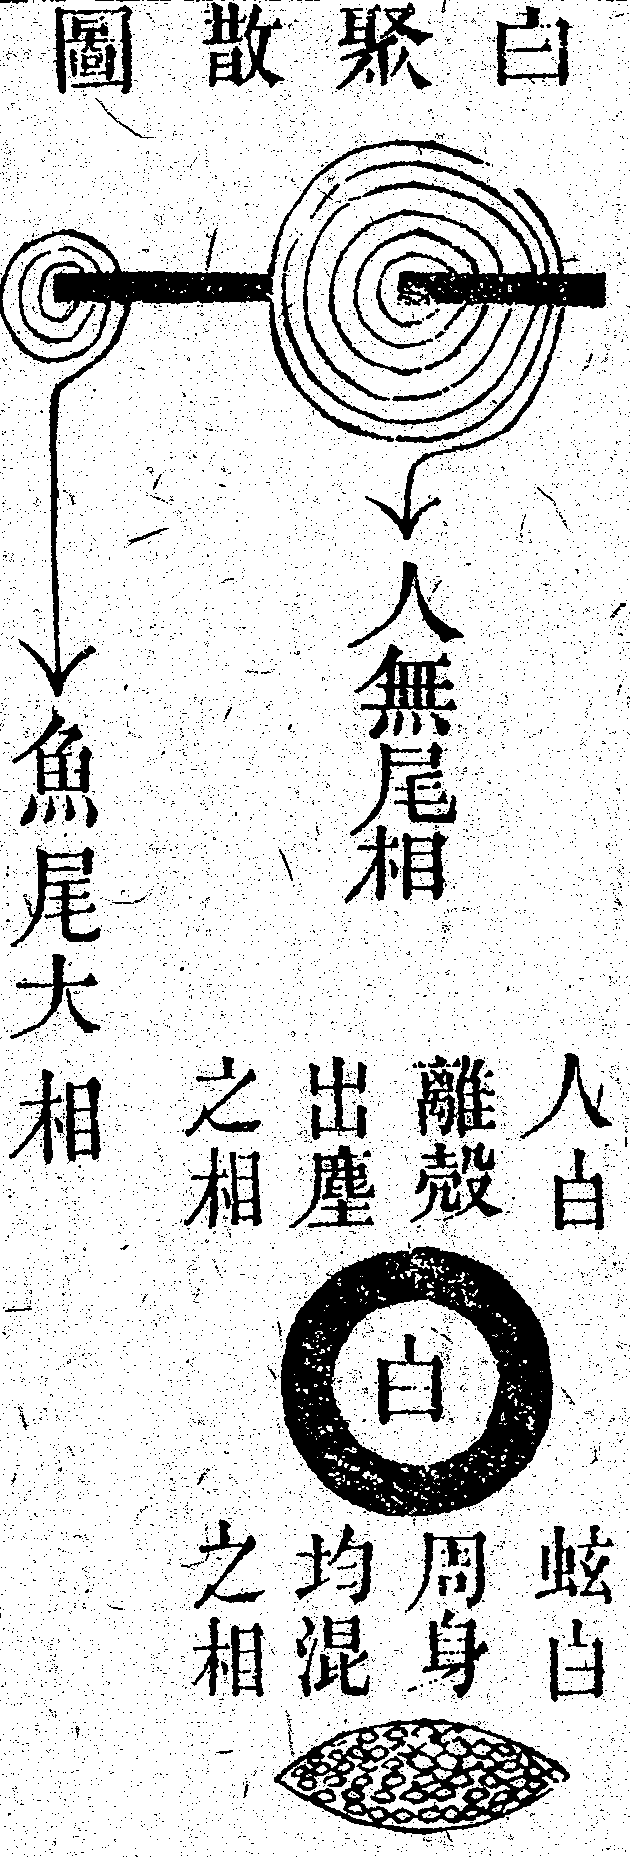 白聚散圖
人無尾相
魚尾大相
人白
離殼
出塵
之相
白
蚿白
周身
均混
之相